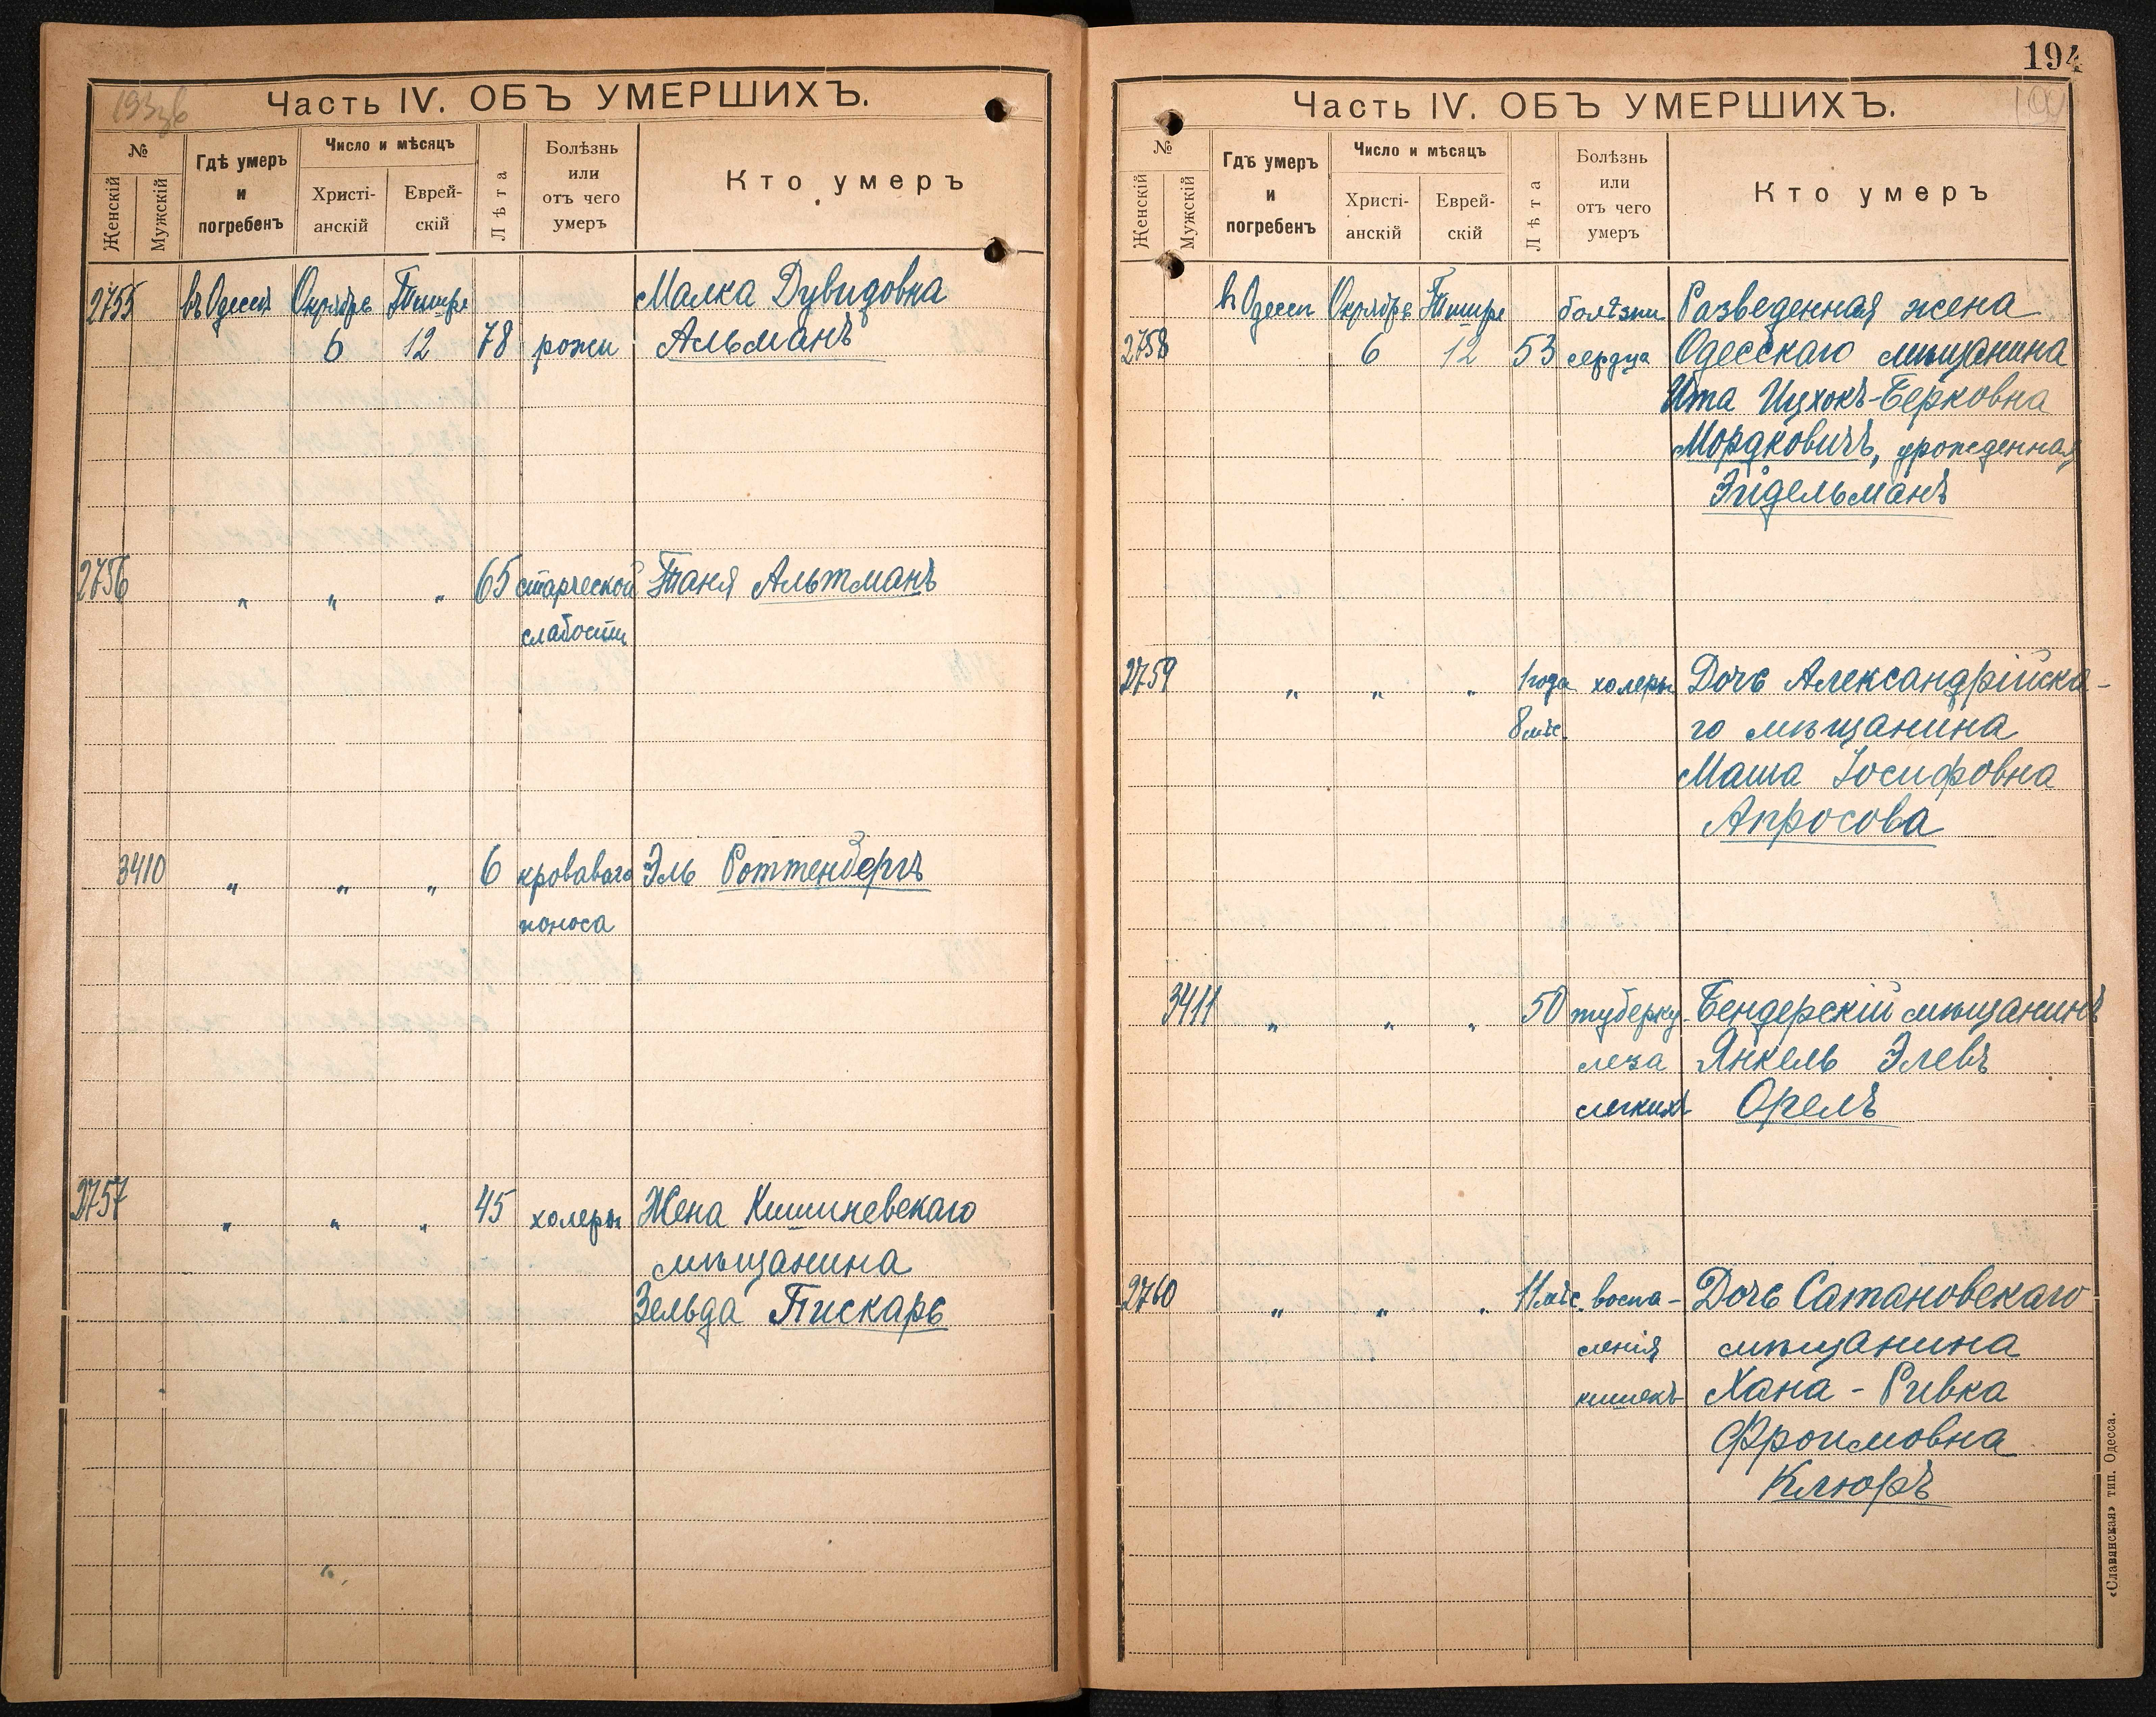 193 об
Часть IV. ОБЪ УМЕРШИХЪ.
№
Женскій
Мужскій
Гдѣ умеръ и погребенъ
Число и мѣсяцъ
Христіанскій
Еврейскій
Лѣта
Болѣзнь или отъ чего умеръ
Кто умеръ
2755 въ Одессѣ Октябрь Тишре Малка Дувидовна
6 12 78 рожи Альманъ
2756 " " " 65 старческой Таня Альтманъ
слабости
3410 " " " 6 кроваваго Эль Роттенбергъ
поноса
2757 " " " 45 холеры Жена Кишиневскаго
мѣщанина
Зельда Пискарь
194
Часть IV. ОБЪ УМЕРШИХЪ.
№
Женскій
Мужскій
Гдѣ умеръ и погребенъ
Число и мѣсяцъ
Христіанскій
Еврейскій
Лѣта
Болѣзнь или отъ чего умеръ
Кто умеръ
въ Одессѣ Октябрь Тишре болѣзни Разведенная жена
2758 6 12 53 сердца Одесскаго мѣщанина
Ита Ицхокъ-Берковна
Мордковичъ, урожденная
Эйдельманъ
2759 " " " 1 года холеры Дочь Александрійска-
8 мѣс. го мѣщанина
Маша Іосифовна
Апросова
3411 " " " 50 туберку- Бендерскій мѣщанинъ
леза Янкель Элевъ
легкихъ Орелъ
2760 " " " 11 мѣс. воспа- Дочь Сатановскаго
ленія мѣщанина
кишекъ Хана-Ривка
Фроимовна
Клюръ
«Славянская» тип. Одесса.